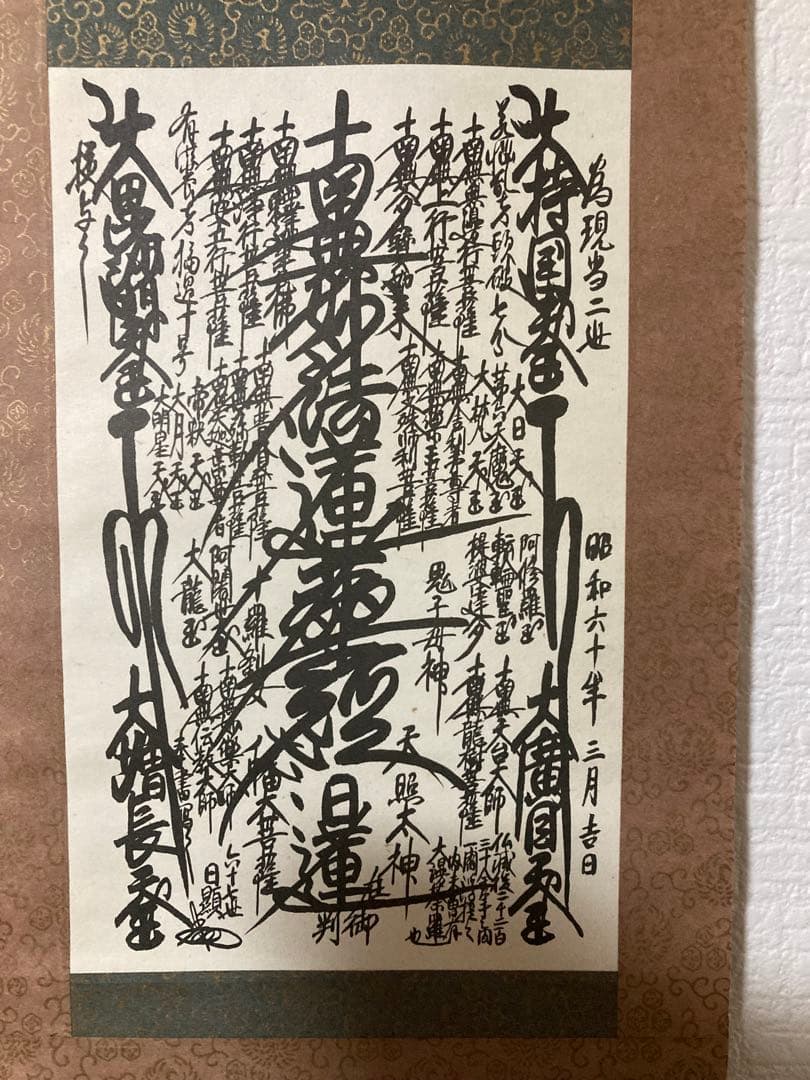 為現当二世
昭和六十年三月吉日
大持国天王
大廣目天王
若悩乱者頭破七分
大日天王
第六天魔王
大梵天王
阿修羅王
転輪聖王
提婆達多
南無無邊行菩薩
南無上行菩薩
南無多寶如来
南無舎利弗尊者
南無薬王菩薩
南無文殊師利菩薩
鬼子母神
南無天台大師
南無龍樹菩薩
天照太神
仏滅後二千二百
三十余年之間
一閻浮提之
内未曾有
大漫荼羅
也
南無妙法蓮華経
日蓮
在御
判
南無釋迦牟尼佛
南無浄行菩薩
南無安立行菩薩
南無普賢菩薩
南無弥勒菩薩
南無大迦葉尊者
帝釈天王
大月天王
大明星天王
十羅刹女
阿闍世王
大龍王
八幡大菩薩
南無妙楽大師
南無伝教大師
有供養者福過十号
大毘沙門天王
大増長天王
奉書写之
六十七世
日顕
授与之